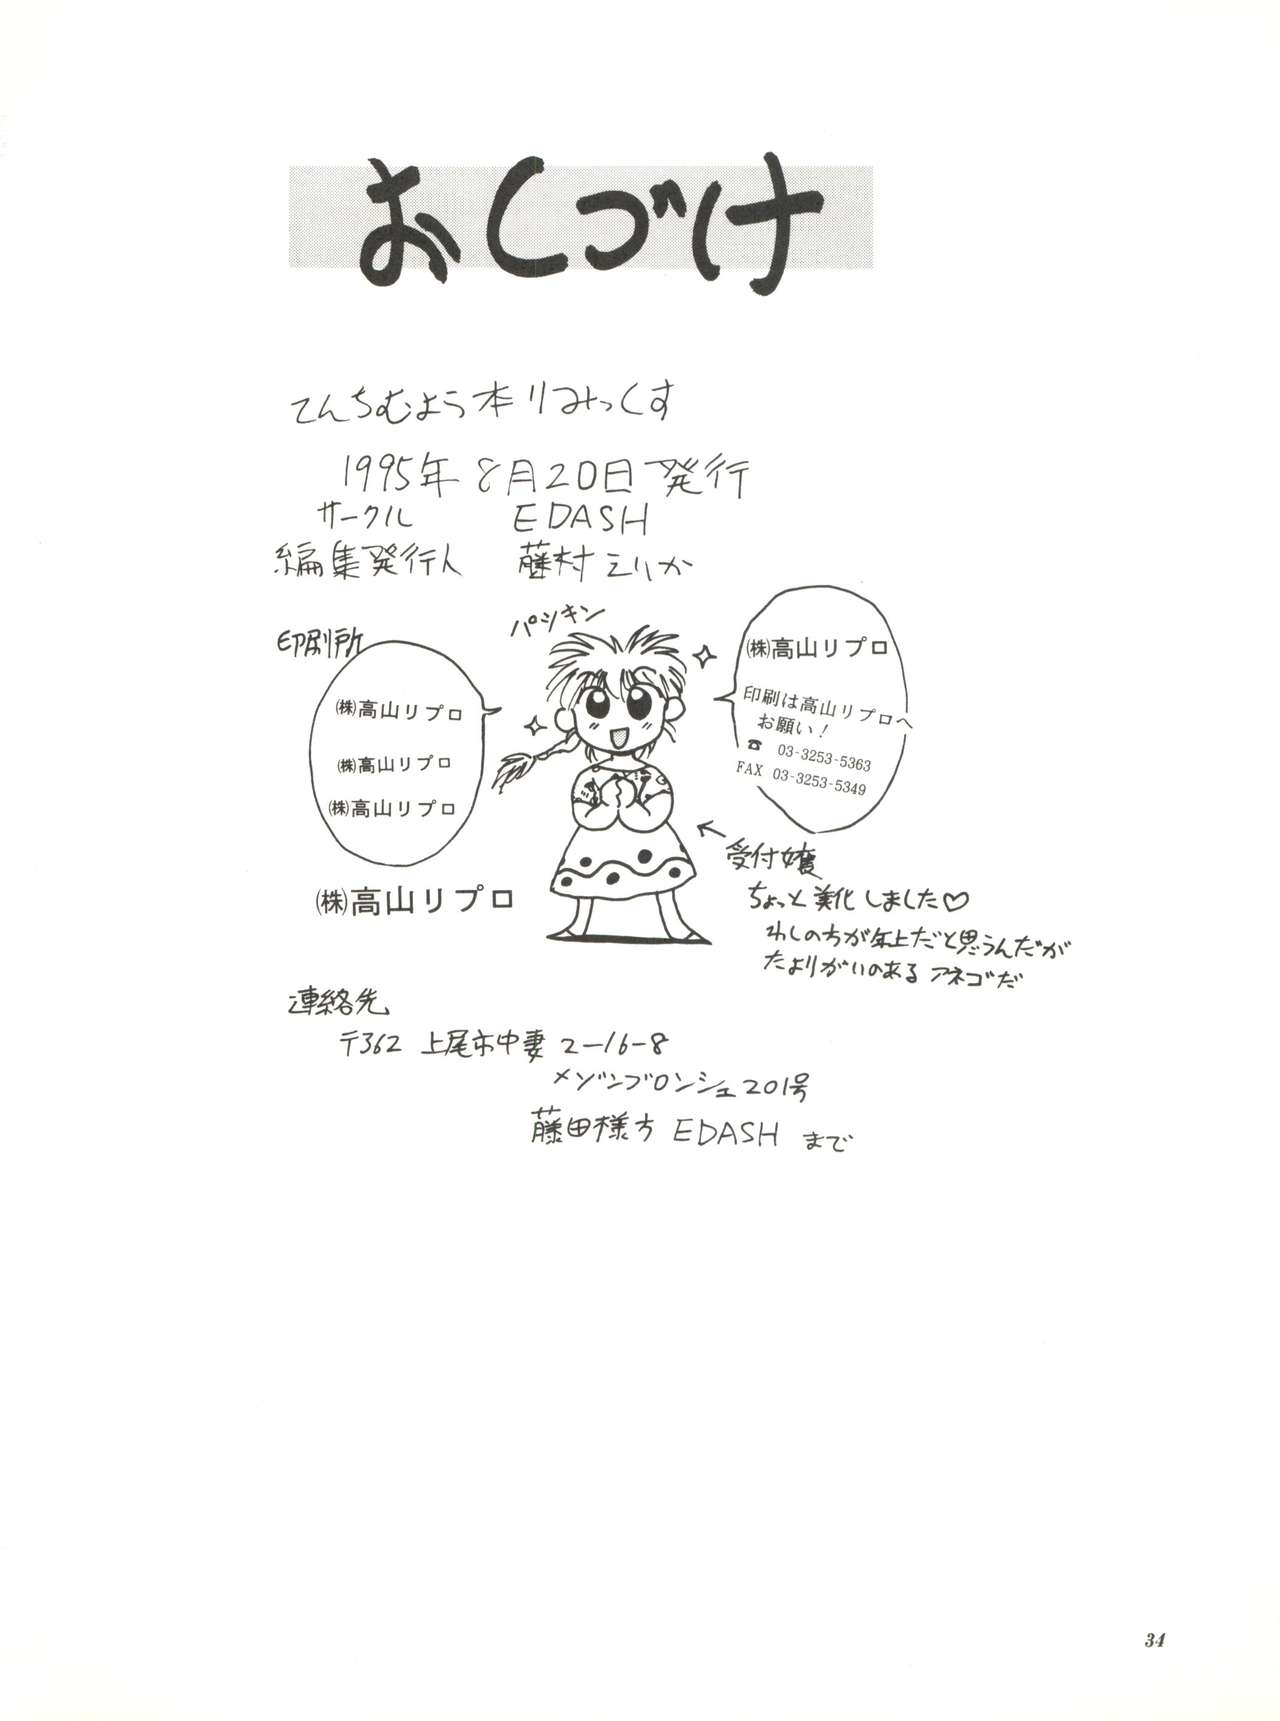 おくづけ
てんちむよう本りみっくす
1995年8月20日発行
サークル EDASH
編集発行人 藤村えりか
印刷所
㈱高山リプロ
㈱高山リプロ
㈱高山リプロ
㈱高山リプロ
パツキン
㈱高山リプロ
印刷は高山リプロへ
お願い！
☎ 03-3253-5363
FAX 03-3253-5349
←受付嬢
ちょっと美化しました♡
わしの方が年上だと思うんだが
たよりがいのあるアネゴだ
連絡先
〒362 上尾市中妻2-16-8
メゾンブロンシェ201号
藤田様方 EDASH まで
34